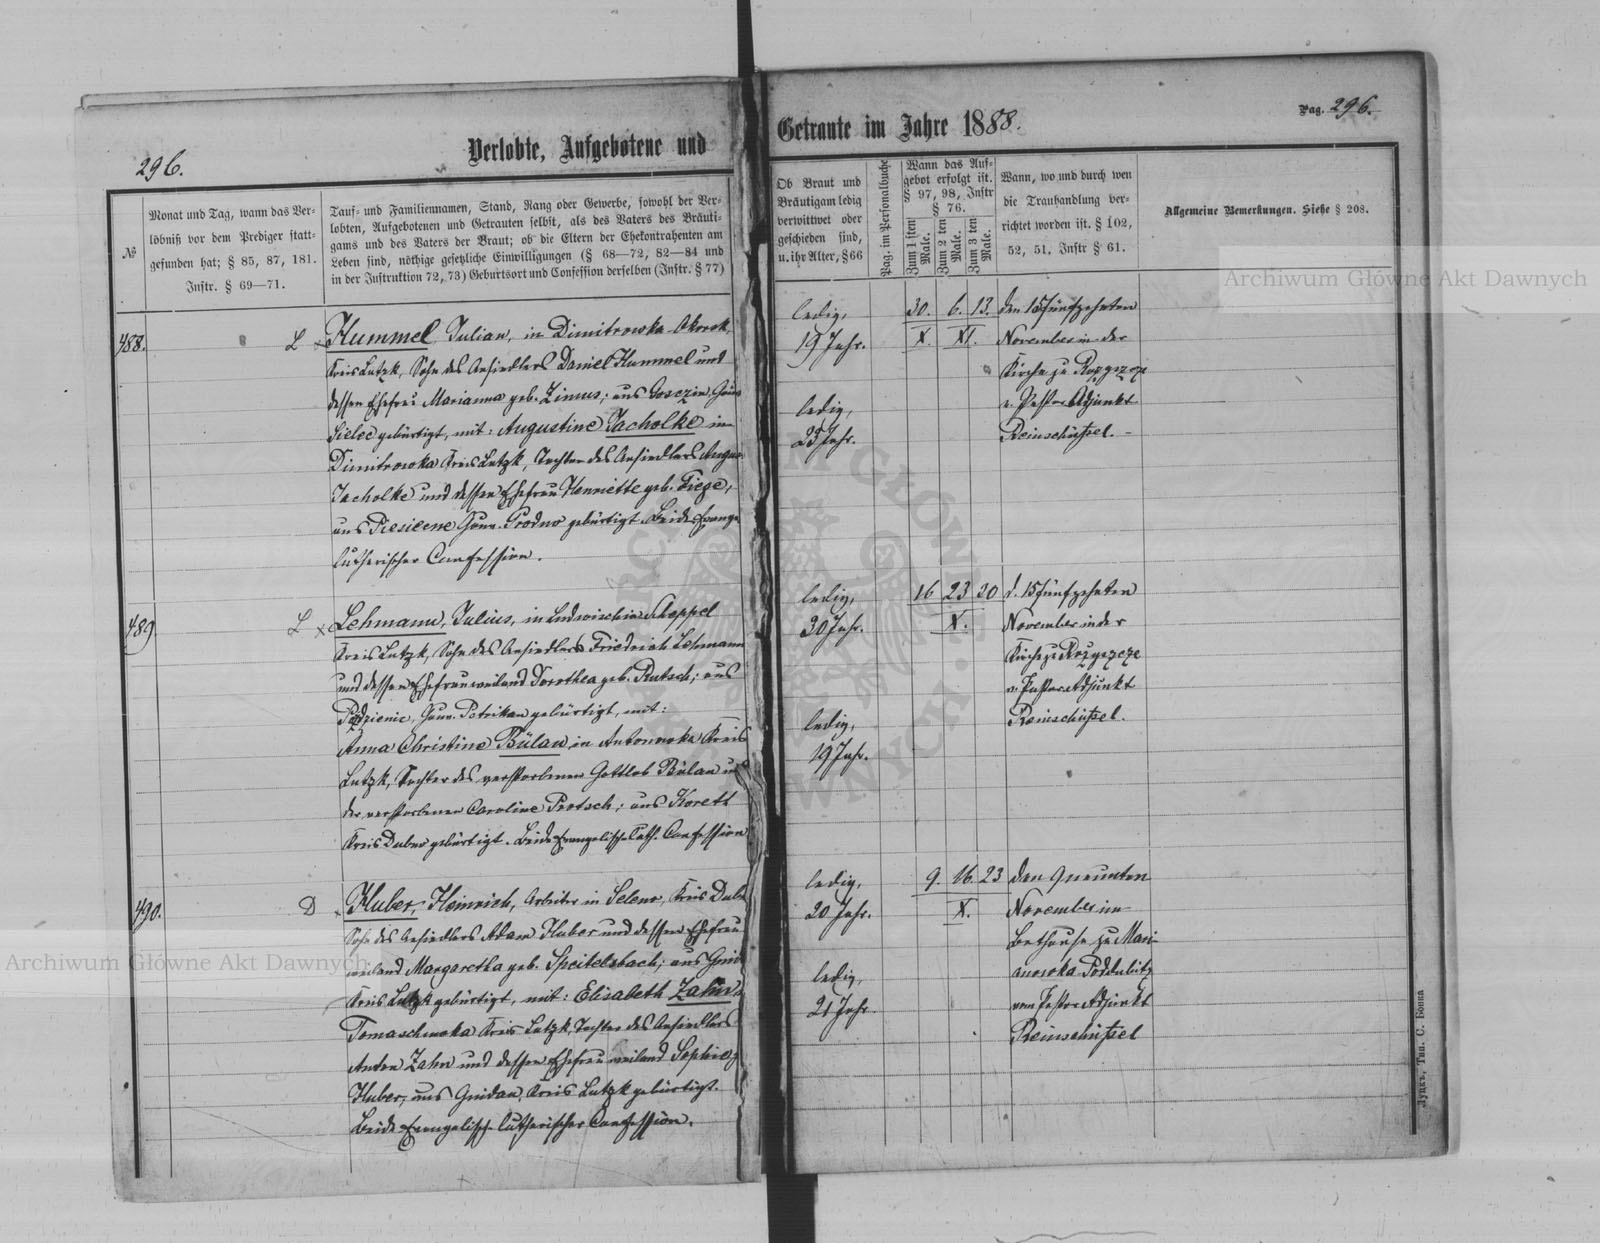 296.
Verlobte, Aufgebotene und
№
Monat und Tag, wann das Ver-
löbniß vor dem Prediger statt-
gefunden hat; § 85, 87, 181.
Instr. § 69—71.
Tauf- und Familiennamen, Stand, Rang oder Gewerbe, sowohl der Ver-
lobten, Aufgebotenen und Getrauten selbst, als des Vaters des Bräuti-
gams und des Vaters der Braut; ob die Eltern der Ehekontrahenten am
Leben sind, nöthige gesetzliche Einwilligungen (§ 68—72, 82—84 und
in der Instruktion 72, 73) Geburtsort und Confession derselben (Instr. § 77)
488.
L
Hummel, Julian, in Dimitrowka
Kreis Lutzk, Sohn des Ansiedlers Daniel Hummel und
dessen Ehefrau Marianna geb. Zimus; aus
gebürtigt, mit: Augustine Jacholke in
Dimitrowka Kreis Lutzk, Tochter des Ansiedlers
Jacholke und dessen Ehefrau Henriette geb. Tiege,
aus Gouv. Grodno gebürtigt. Beide Evange.
lutherischer Confession.
489.
L
Lehmann, Julius, in
Kreis Lutzk, Sohn des Ansiedlers Friedrich Lehmann
und dessen Ehefrau weiland Dorothea geb. Rutsch; aus
Gouv. Petrikau gebürtigt, mit:
Anna Christine Bülau in Antonowka Kreis
Lutzk, Tochter des verstorbenen Gottlob Bülau und
der verstorbenen Caroline Pretsch; aus Korett
Kreis Dubno gebürtigt. Beide Evangelisch Luth. Confession
490.
D
Huber, Heinrich, Arbeiter in Seleno, Kreis Dubn
Sohn des Ansiedlers Adam Huber und dessen Ehefrau
weiland Margaretha geb. Speitelsbach; aus
Kreis Lutzk gebürtigt, mit: Elisabeth Zahn
Tomaschewka Kreis Lutzk, Tochter des Ansiedlers
Anton Zahn und dessen Ehefrau weiland Sophie
Huber, aus Gnidau, Kreis Lutzk gebürtigt.
Beide Evangelisch lutherischer Confession.
Pag. 296.
Getraute im Jahre 1888.
Ob Braut und
Bräutigam ledig
verwittwet oder
geschieden sind,
u. ihr Alter, § 66
Pag. im Personalbuche
Wann das Auf-
gebot erfolgt ist.
§ 97, 98, Instr
§ 76.
Zum 1 sten Male.
Zum 2 ten Male.
Zum 3 ten Male.
Wann, wo und durch wen
die Trauhandlung ver-
richtet worden ist. § 102,
52, 51. Instr § 61.
Allgemeine Bemerkungen. Siehe § 208.
ledig, 30. 6. 13. den 15 fünfzehnten
19 Jahr. X. XI. November in der
Kirche zu Rozyszcze
v. Pastor Adjunkt
ledig,
23 Jahr. Reinschüssel.
ledig, 16 23 30 d. 15 fünfzehnten
30 Jahr. X. November in der
Kirche zu Rozyszcze
v. Pastor Adjunkt
ledig, Reinschüssel.
19 Jahr.
ledig, 9. 16. 23 den 9 neunten
20 Jahr. X. November im
Bethause zu Mari-
ledig, anowka Poddubitz
21 Jahr vom Pastor Adjunkt
Reinschüssel
Луцкъ, Тип. С. Бонка
Archiwum Główne Akt Dawnych
Archiwum Główne Akt Dawnych